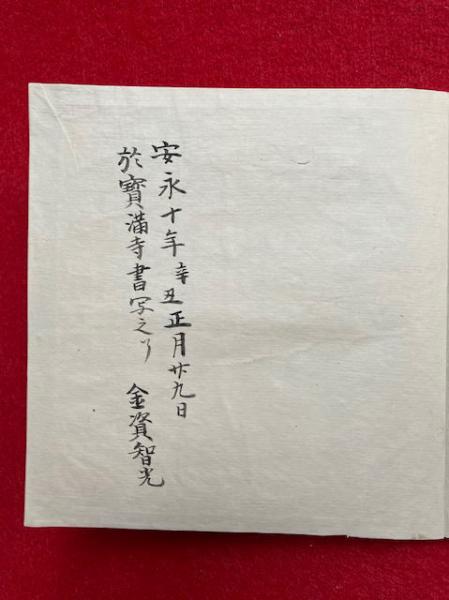 安永十年辛丑正月廿九日
於寳満寺書写之了　金資智光